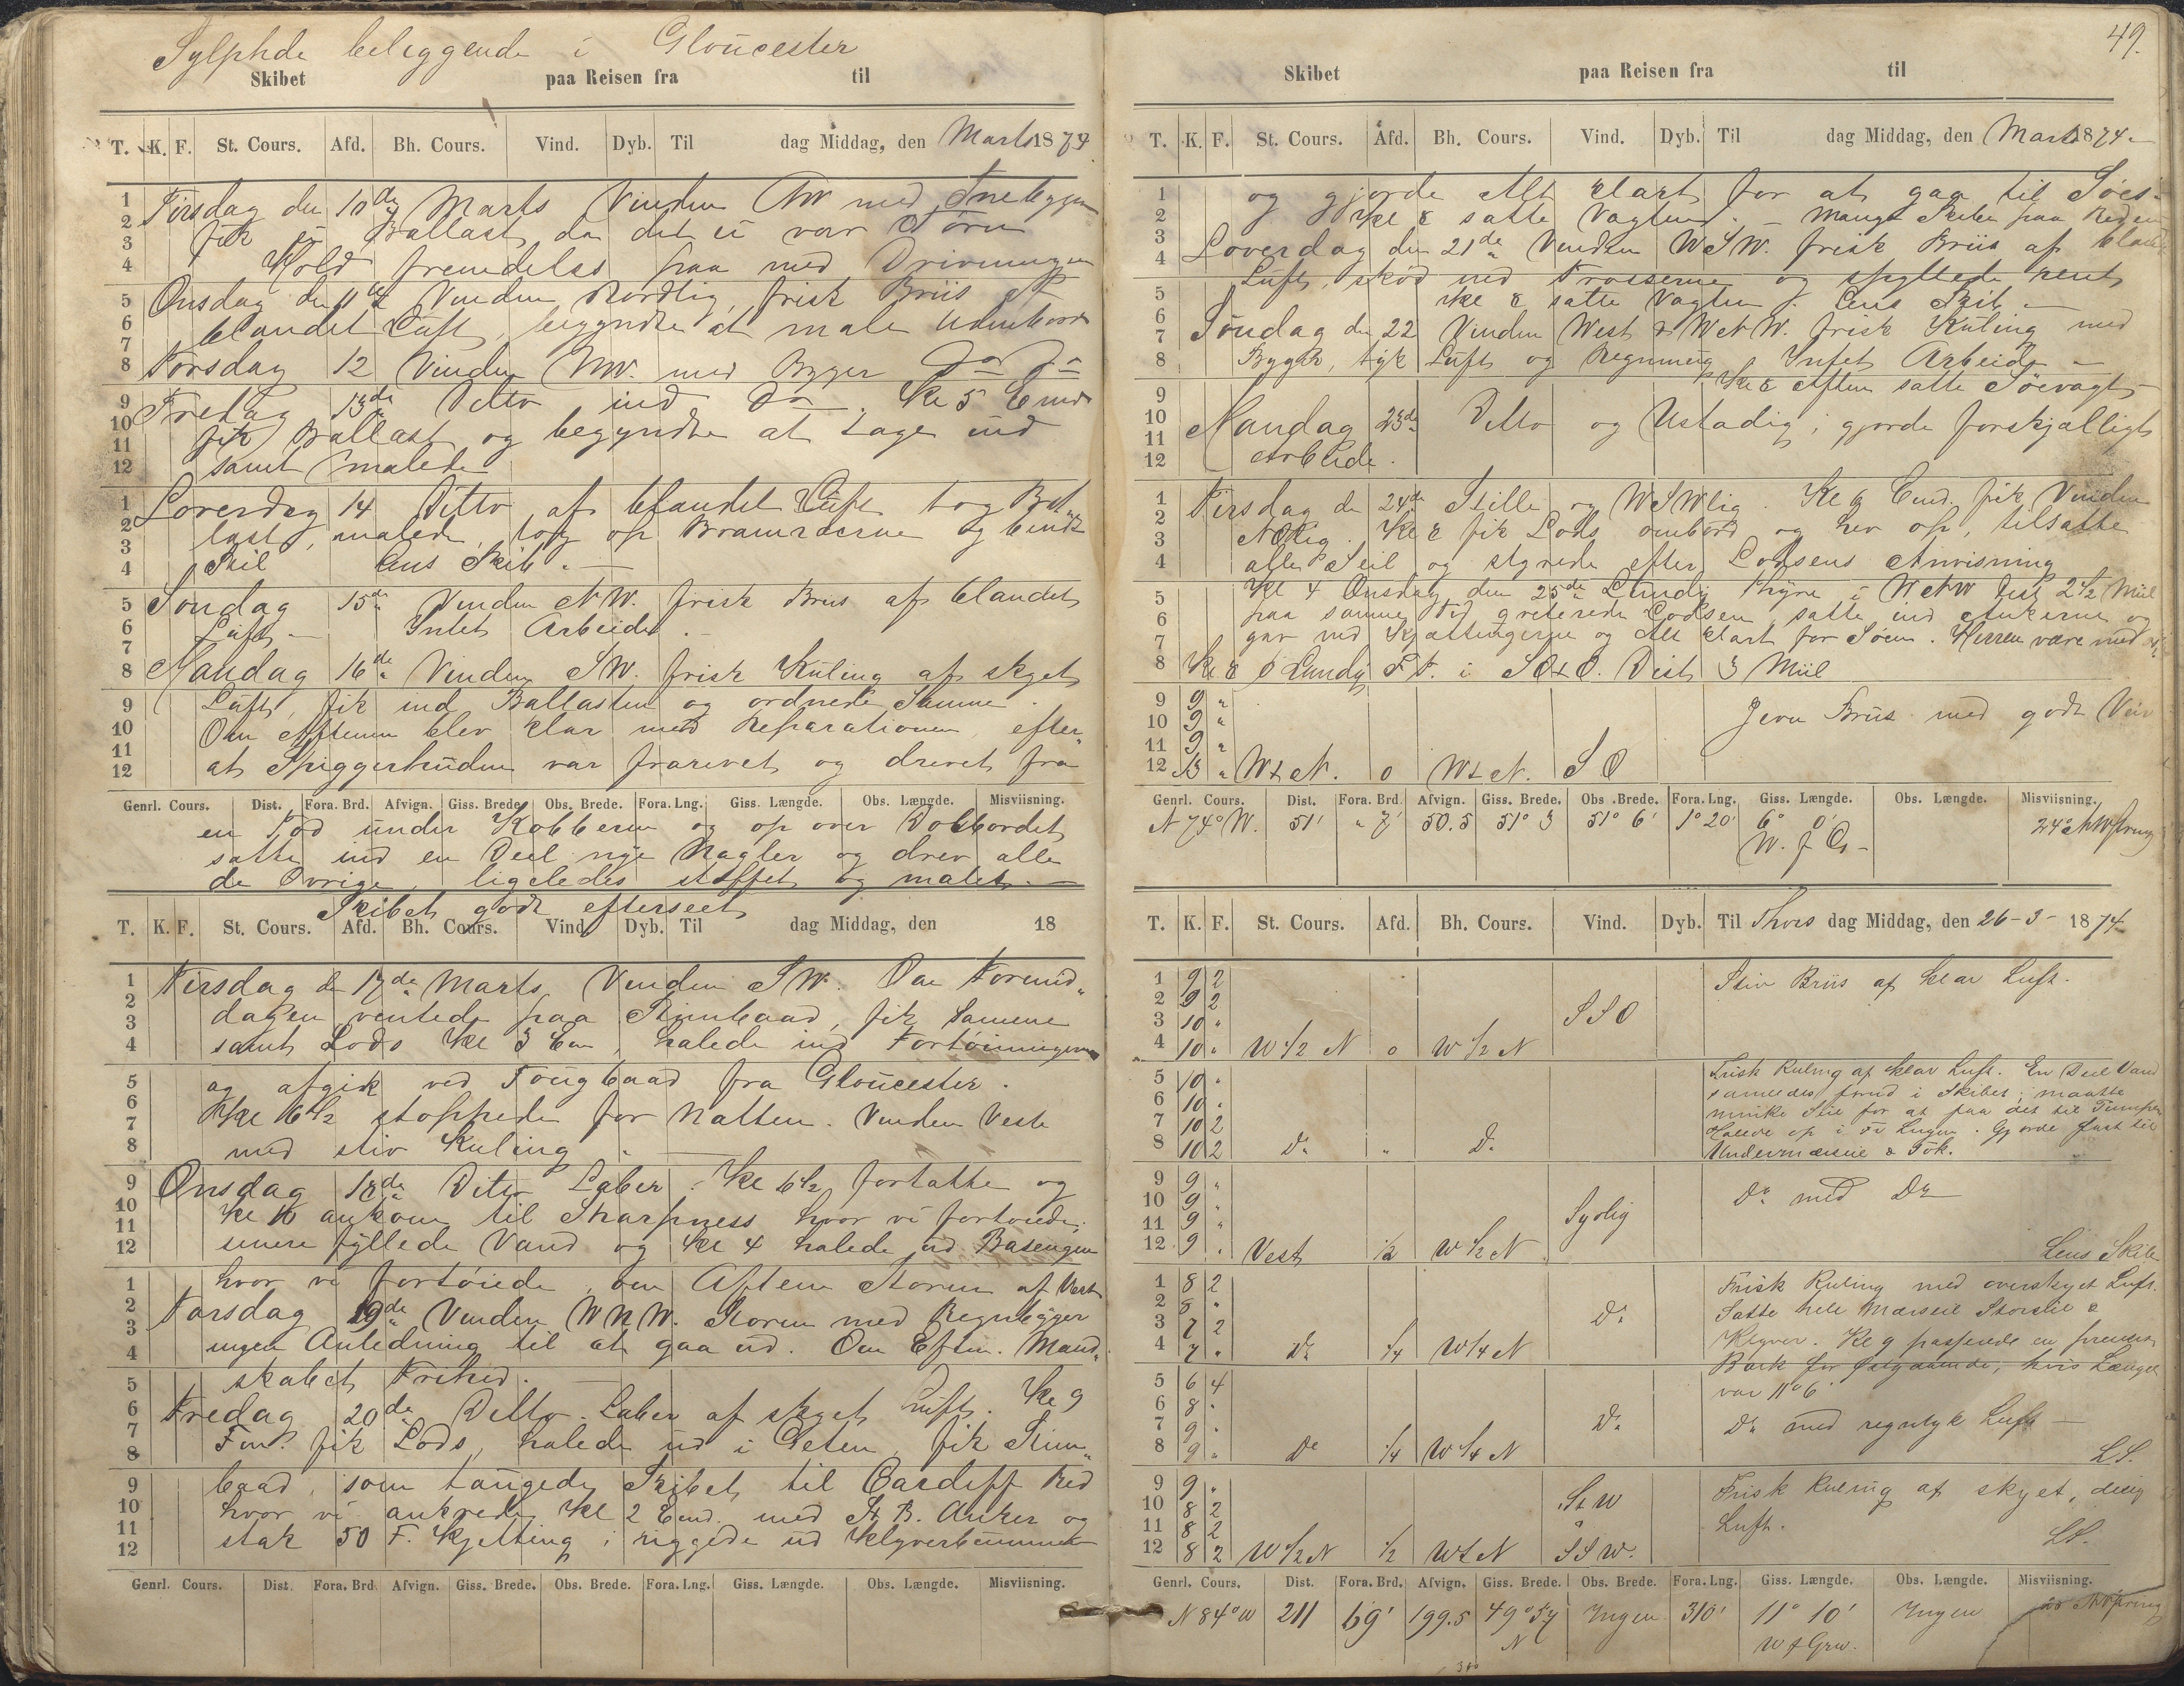 Sylphide beliggende i Gloucester
Skibet paa Reisen fra til
T. K. F. St. Cours. Afd. Bh. Cours. Vind. Dyb. Til dag Middag, den Marts 1874
Tirsdag den 10de Marts Vinden NW med Snebygger
fik ei Ballast, da det ei var Tørn
Holdt fremdeles paa med Drivningen
Onsdag den 11te Vinden Nordlig, frisk Briis af
blandet Luft, begyndte at male Udenbords
Torsdag 12 Vinden NW. med Bygger Do Do
Fredag 13de Ditto ind Do. Kl 5 Emd
fik Ballast og begyndte at tage ind
samt malede
Loverdag 14 Ditto af blandet Luft tog Bal-
last, malede, tog op Bramræerne og bendte
Seil Lens Skib.
Søndag 15de Vinden NW. frisk Briis af blandet
Luft. Intet Arbeide.
Mandag 16de Vinden SW. frisk Kuling af skyet
Luft, fik ind Ballasten og ordnede Samme.
Om Aftenen blev klar med Reparationen, efter
at Spiggerhuden var frarevet og drevet fra
Genrl. Cours. Dist. Fora. Brd. Afvign. Giss. Brede. Obs. Brede. Fora. Lng. Giss. Længde. Obs. Længde. Misviisning.
en Fod under Kobberen og op over Dolbordet
satte ind en Deel nye Nagler og drev alle
de Øvrige, ligeledes stoppet og malet.
Skibet godt efterseet
T. K. F. St. Cours. Afd. Bh. Cours. Vind. Dyb. Til dag Middag, den 18
Tirsdag d 17de Marts Vinden SW. Om Formid-
dagen ventede paa Stimbaad, fik Samme
samt Lods Kl 3 Em, halede ind Fortøiningerne
og afgik ved Tougbaad fra Gloucester.
Kl 6 1/2 stoppede for Natten. Vinden Vest
med stiv Kuling.
Onsdag 18de Ditto Laber. Kl 6 1/2 fortsatte og
Kl 10 ankom til Sharpness hvor vi fortøiede,
senere fyllede Vand og Kl 4 halede ud Basengen
hvor vi fortøiede, om Aftenen Storm af Vest
Torsdag 19de Vinden WNW. Storm med Regnbygger
ingen Anledning til at gaa ud. Om Eftm. Mand-
skabet Frihed.
Fredag 20de Ditto. Laber af skyet Luft. Kl 9
Fm. fik Lods, halede ud i Geten, fik Stim-
baad, som tougede Skibet til Cardiff Red
hvor vi ankrede Kl 2 Emd. med St. B. Anker og
stak 50 F. Kjetting; riggede ud Klyverbommen
Genrl. Cours. Dist. Fora. Brd. Afvign. Giss. Brede. Obs. Brede. Fora. Lng. Giss. Længde. Obs. Længde. Misviisning.
49.
Skibet paa Reisen fra til
T. K. F. St. Cours. Afd. Bh. Cours. Vind. Dyb. Til dag Middag, den Marts 1874
og gjorde Alt klart for at gaa til Søes.
Kl 8 satte Vagten. Mange Skibe paa Reden
Loverdag den 21de Vinden WSW. frisk Briis af blandet
Luft, skød ned Trosserne og spyllede rent
Kl 8 satte Vagten. Lens Skib.
Søndag den 22 Vinden West & WNW. frisk Kuling med
Bygger, tyk Luft og Regnning. Intet Arbeide.
Kl 8 Aften satte Søevagt
Mandag 23de Ditto og Ustadig; gjorde forskjælligt
Arbeide.
Tirsdag d 24de Stille og WSWlig. Kl 6 Emd. fik Vinden
NOlig. Kl 8 fik Lods ombord og hev op, tilsatte
alle Seil og styrede efter Lodsens Anvisning
Kl 4 Onsdag den 25de Lundy Fhyre i WNW Dist 2 1/2 Miil
paa samme Tid qviterede Lodsen, satte ind Ankerne og
gav ned Kjættingerne og Alt klart for Søen. Herren være med os
Kl 8 Ø Lundy Ft. i SOtO. Dist 3 Miil
9 9 "
10 9 "
11 9 " Jevn Briis med godt Veir
12 13 " WtN. 0 WtN. SO
Genrl. Cours. Dist. Fora. Brd. Afvign. Giss. Brede. Obs. Brede. Fora. Lng. Giss. Længde. Obs. Længde. Misviisning.
N 74° W. 51' " 7' 50.5 51° 3 51° 6' 1° 20' 6° 0' 24°
W. f Gr
T. K. F. St. Cours. Afd. Bh. Cours. Vind. Dyb. Til Thors dag Middag, den 26-3- 1874
1 9 2 Stiv Briis af klar Luft.
2 9 2
3 10 " SSO
4 10 " W 1/2 N 0 W 1/2 N
5 10 " Frisk Kuling af klar Luft. En Deel Vand
6 10 " samledes forud i Skibet, maatte
minke Seil for at faa det til Pumpen
7 10 2 Halede op i Fr Lugen. Gjorde fast til
8 10 2 Do " Do Undermærseil & Fok.
9 9 " Do med Do
10 9 "
11 9 " Sydlig
12 9 " Vest 1/2 W 1/2 N Lens Skib
1 8 2 Frisk Kuling med overskyet Luft.
2 8 " Do Satte hele Mærseil Storseil &
3 7 2 Klyver. Kl 9 passerede en fremmed
4 7 " Do 1/4 W 1/4 N Bark for Østgaaende, hvis Længde
5 6 4 var 11° 6'
6 8 "
7 9 " Do Do med regntyk Luft
8 9 " Do 1/4 W 1/4 N LS.
9 9 " StW Frisk Kuling af skyet, diisig
10 8 2 Luft.
11 8 2
12 8 2 W 1/2 N 1/2 WtN SSW. LS.
Genrl. Cours. Dist. Fora. Brd. Afvign. Giss. Brede. Obs. Brede. Fora. Lng. Giss. Længde. Obs. Længde. Misviisning.
N 84° W 211 69' 199.5 49° 54 Ingen 310' 11° 10' Ingen
N W f Grw.